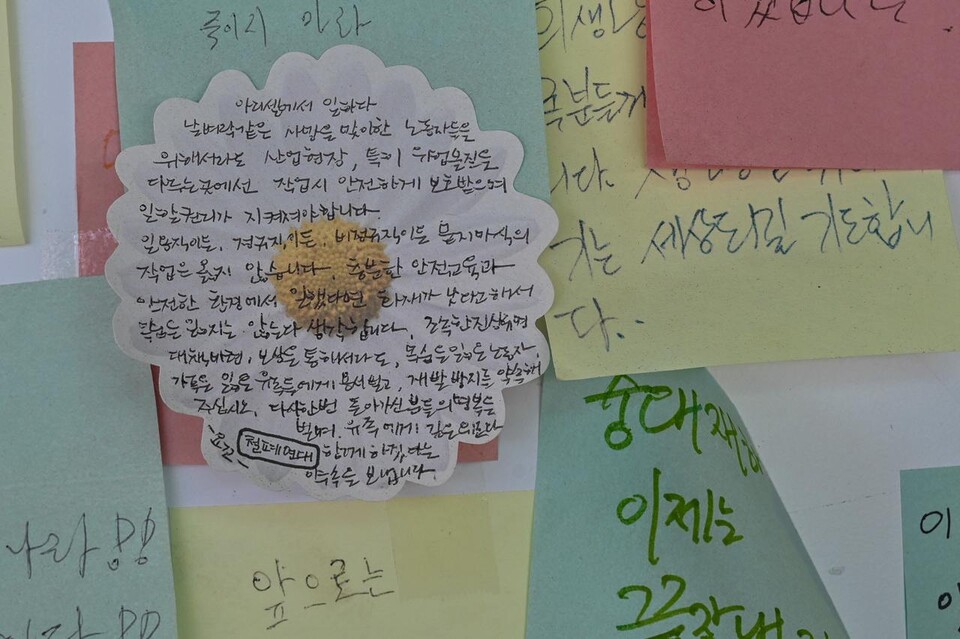 죽이지 마라
아리셀에서 일하다
날벼락같은 사망을 맞이한 노동자들을
위해서라도 산업현장, 특히 위험물질을
다루는곳에선 작업시 안전하게 보호받으며
일할권리가 지켜져야합니다.
일용직이든, 정규직이든, 비정규직이든 묻지마식의
작업은 옳지 않습니다. 충분한 안전교육과
안전한 환경에서 일했다면 화재가 났다고해서
목숨을 잃지는 않는다 생각합니다. 조속한진상규명
대책마련, 보상을 통해서라도, 목숨을잃은노동자,
가족을 잃은 유족들에게 용서빌고, 재발방지를 약속해
주십시오. 다시한번 돌아가신분들의명복을
빌며, 유족에게 깊은위로와
철폐연대 함께 하겠다는
약속을 보냅니다.
희생
분들께
니다.
기는 세상되길 기도합니
다..
중대재해
이제는
앞으로는
이